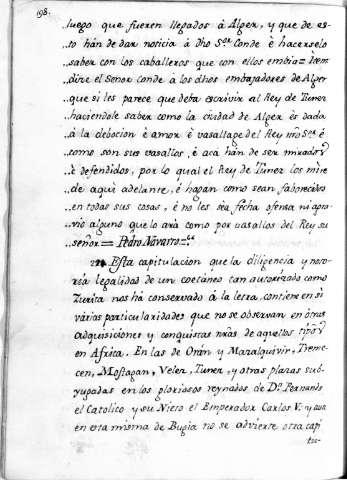 198.
luego que fueren llegados á Alger, y que de es-
to hán de dar noticia á dho Sor. Conde é hacerselo
saber con los caballeros que con ellos embia = Item
dize el Señor Conde á los dhos embajadores de Alger
que si les parece que deba escrivir al Rey de Tunez
haciendole saber como la ciudad de Alger és dada
á la debocion é amor é vasallage del Rey nro Sor. é
como son sus vasallos, é acá hán de ser mirados
é defendidos, por lo qual el Rey de Tunez los mire
de aqui adelante, é hagan como sean faborecidos
en todas sus cosas, é no les sea fecha ofensa ni agra-
vio alguno que lo ará como por vasallos del Rey su
señor = Pedro Navarro =
Esta capitulacion que la diligencia y noto-
ria legalidad de un coetáneo tan autorizado como
Zurita nos há conservado á la letra, contiene en si
várias particularidades que no se observan en ótras
adquisiciónes y conquistas nras de aquellos tipos
en Africa, En las de Orán y Mazalquivir, Treme-
cen, Mostagan, Velez, Tunez, y otras plazas sub-
yugadas en los gloriosos reynados de Dn. Fernando
el Catolico y su Nieto el Emperador Carlos V. y aun
en esta misma de Bugia no se advierte otra capi
tu-